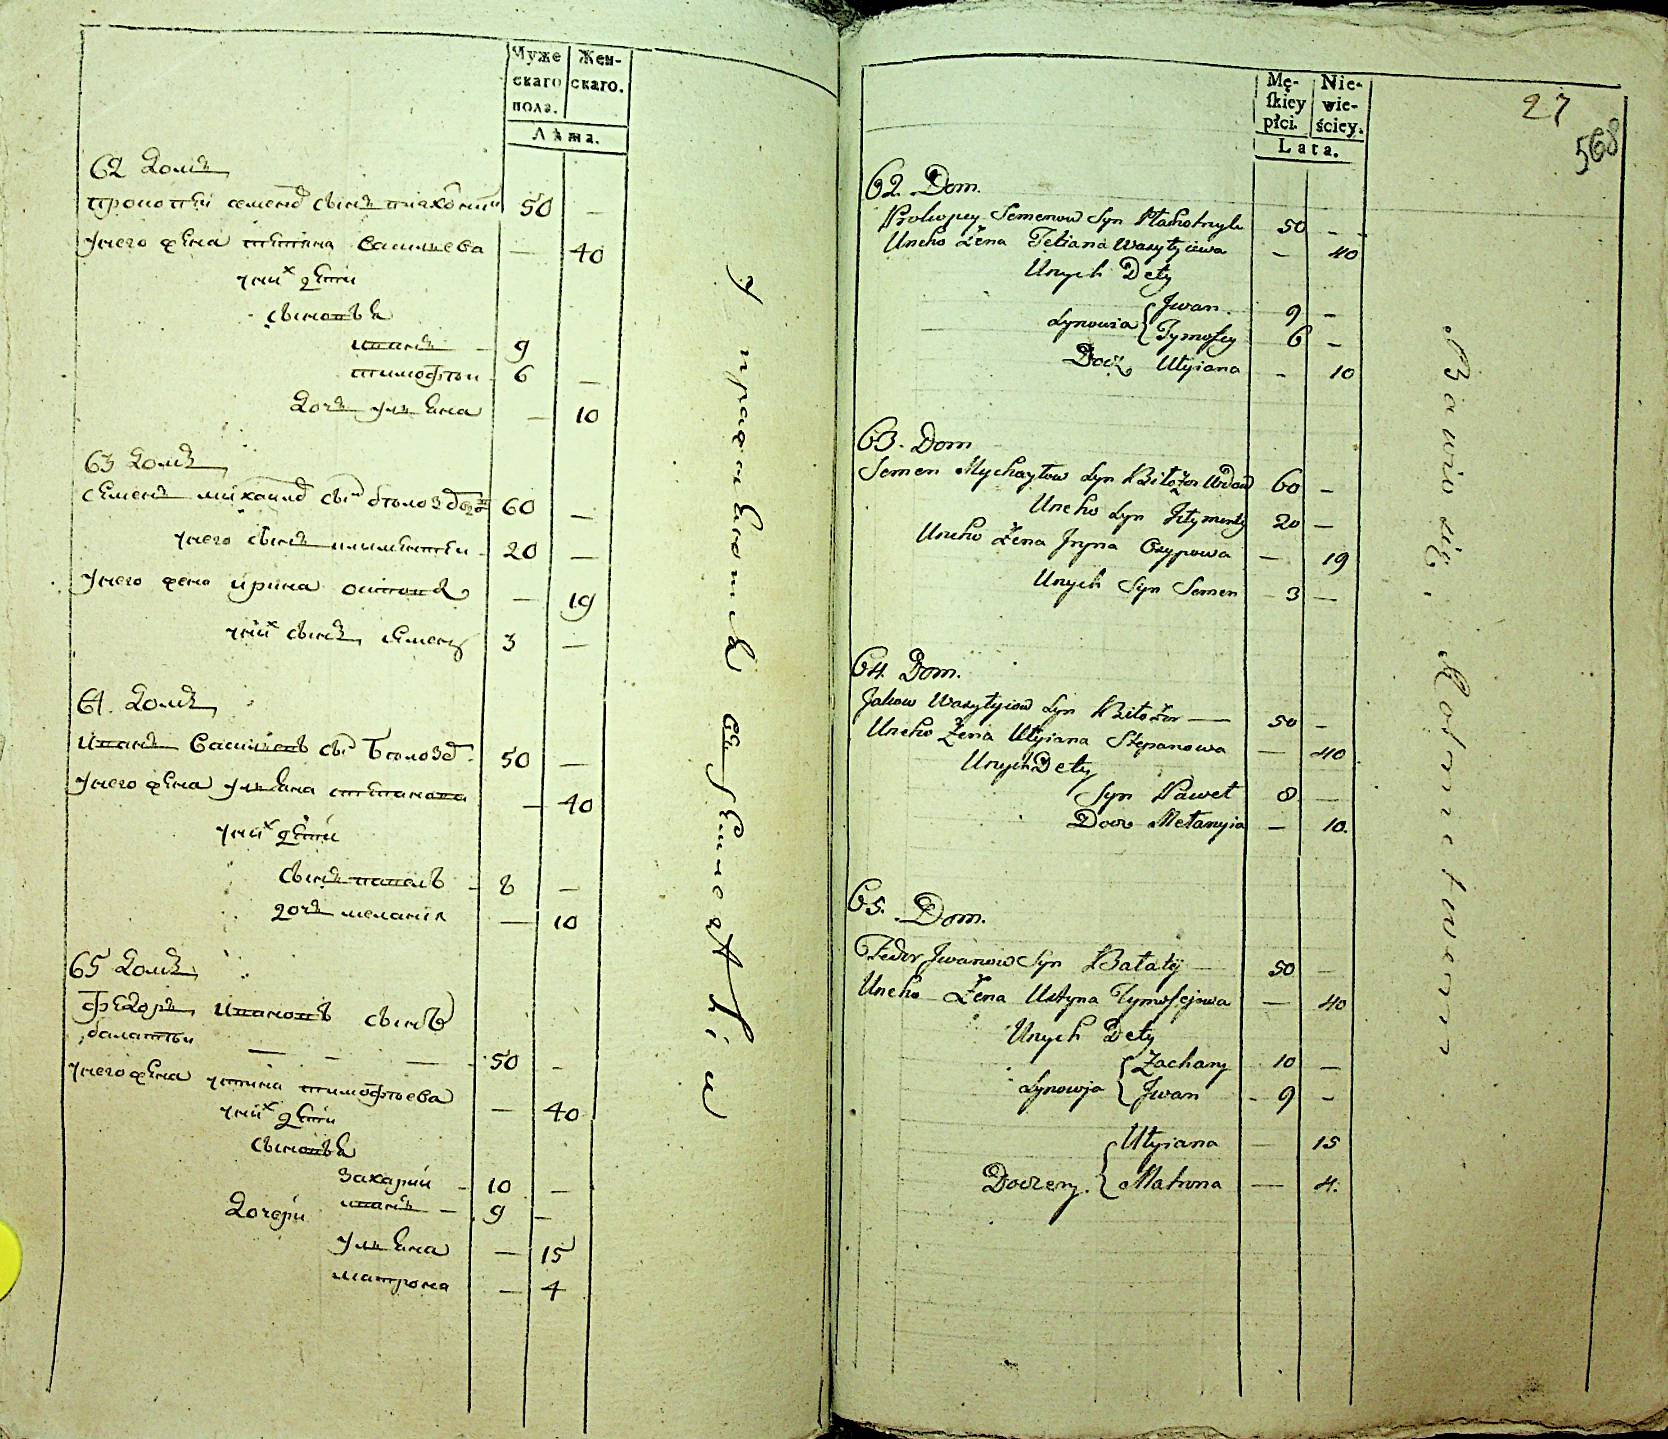 Муже
скаго
пола.
Жен-
скаго.
Лѣта.
62 домъ
прокопѣй семеновъ сынъ
50 —
унего жена татіана василиева — 40
уних дѣти
сыновья
иванъ — 9
тимофѣй 6 —
дочь ульяна — 10
63 домъ
семенъ михайловъ сынъ 60 —
унего сынъ климентий 20 —
унего жена ирина осипова — 19
уних сынъ семенъ 3 —
64. домъ
васильевъ сынъ 50 —
унего жена ульяна степанова — 40
уних дѣти
сынъ павелъ 8 —
дочь меланія — 10
65 домъ
федоръ ивановъ сынъ
балатьй — — — 50 —
унего жена устина тимофѣева — 40
уних дѣти
сыновья
захарий — 10 —
иванъ — 9 —
дочери
ульяна — 15
матрона — 4
Mę-
ſkiey
płci.
Nie-
wie-
ściey.
Lata.
27
568
62. Dom.
Prokopey Semenow Syn 50 - -
Uneho Żena Tetiana Wasylyiewa - 40
Unych Dety
Synowia { Jwan. 9 -
Tymofey 6 -
Docz Ulyiana - 10
63. Dom
Semen Mychayłow Syn Biłożor Wdow 60 -
Uneho Syn Kłymenty 20 —
Uneho Żena Jryna Osypowa — 19
Unych Syn Semen 3 —
64. Dom.
Jakow Wasylyiow Syn Biłożor — 50 -
Uneho Żena Ulyiana Stepanowa — 40
Unych Dety
Syn Paweł 8 —
Docz Mełanyia — 10.
65. Dom.
Fedor Jwanow Syn Bałatyi — 50 —
Uneho Żena Ustyna Tymofejowa — 40
Unych Dety
Synowja { Zachary 10 —
Jwan - 9 -
Doczery. { Ulyiana — 15
Matrona — 4.